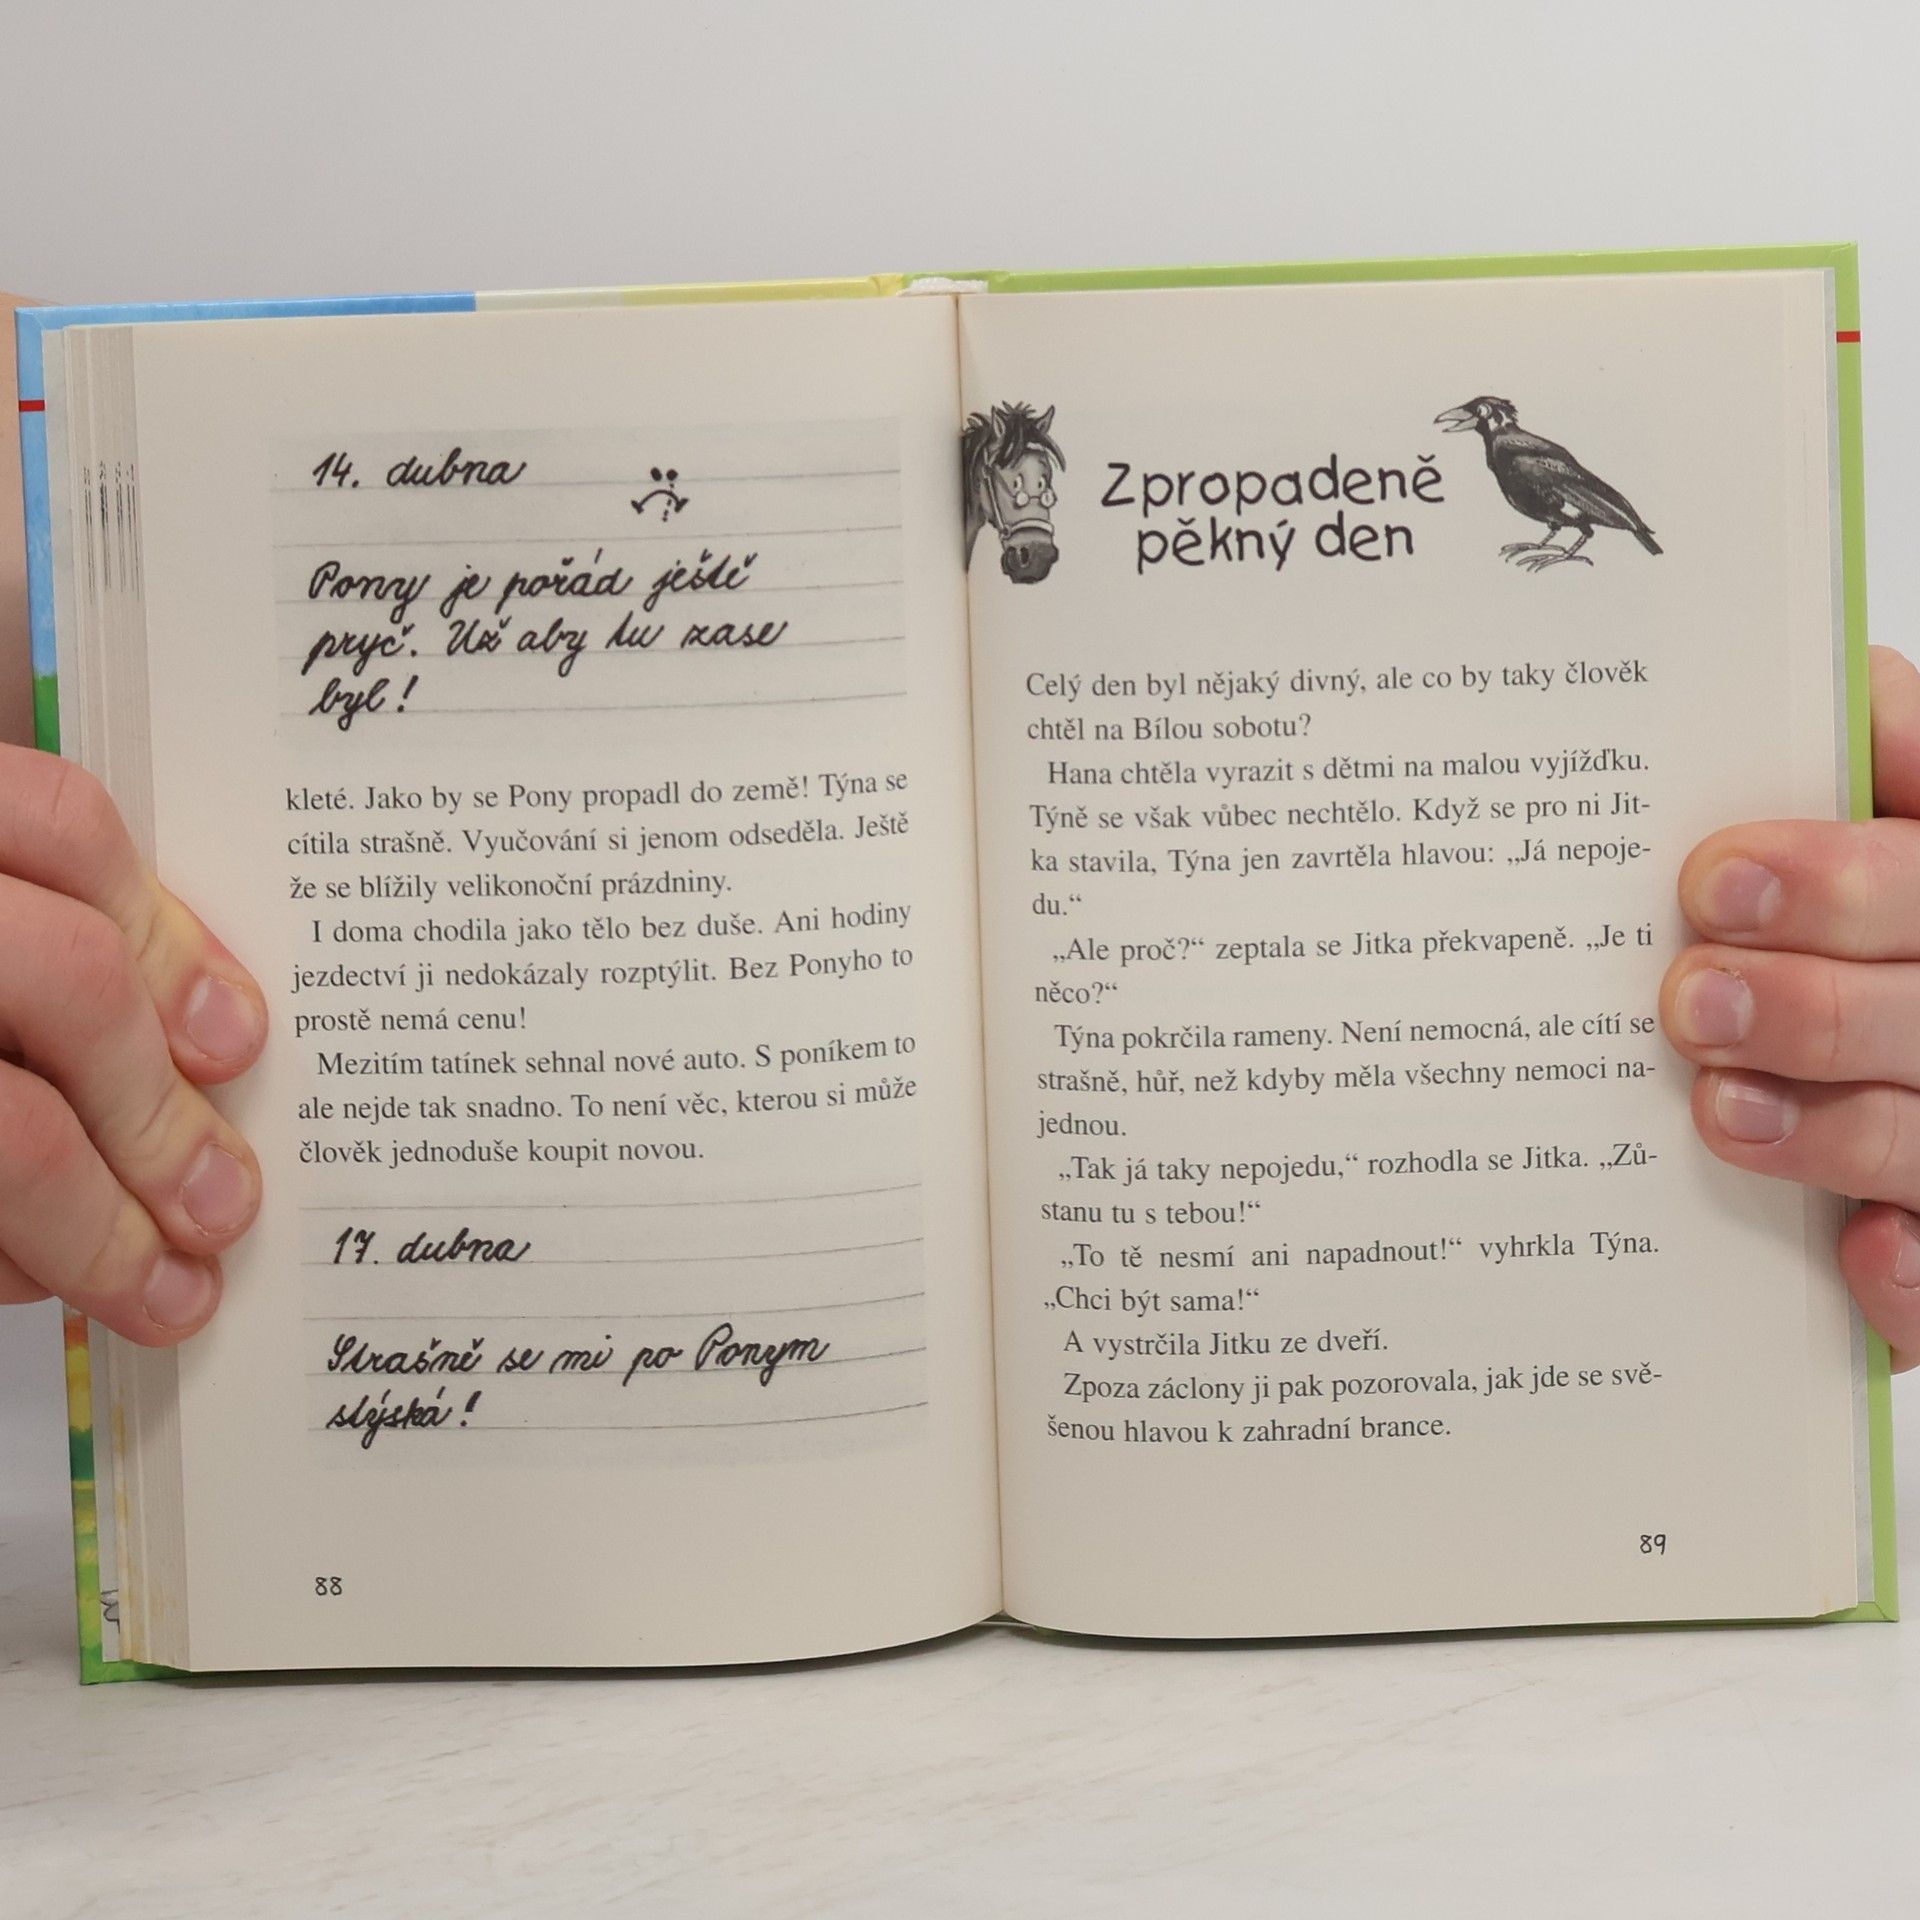 14. dubna
Pony je pořád ještě
pryč. Už aby tu zase
byl!
kleté. Jako by se Pony propadl do země! Týna se
cítila strašně. Vyučování si jenom odseděla. Ještě
že se blížily velikonoční prázdniny.
I doma chodila jako tělo bez duše. Ani hodiny
jezdectví ji nedokázaly rozptýlit. Bez Ponyho to
prostě nemá cenu!
Mezitím tatínek sehnal nové auto. S poníkem to
ale nejde tak snadno. To není věc, kterou si může
člověk jednoduše koupit novou.
17. dubna
Strašně se mi po Ponym
stýská!
88
Zpropadeně
pěkný den
Celý den byl nějaký divný, ale co by taky člověk
chtěl na Bílou sobotu?
Hana chtěla vyrazit s dětmi na malou vyjížďku.
Týně se však vůbec nechtělo. Když se pro ni Jit-
ka stavila, Týna jen zavrtěla hlavou: „Já nepoje-
du.“
„Ale proč?“ zeptala se Jitka překvapeně. „Je ti
něco?“
Týna pokrčila rameny. Není nemocná, ale cítí se
strašně, hůř, než kdyby měla všechny nemoci na-
jednou.
„Tak já taky nepojedu,“ rozhodla se Jitka. „Zů-
stanu tu s tebou!“
„To tě nesmí ani napadnout!“ vyhrkla Týna.
„Chci být sama!“
A vystrčila Jitku ze dveří.
Zpoza záclony ji pak pozorovala, jak jde se svě-
šenou hlavou k zahradní brance.
89